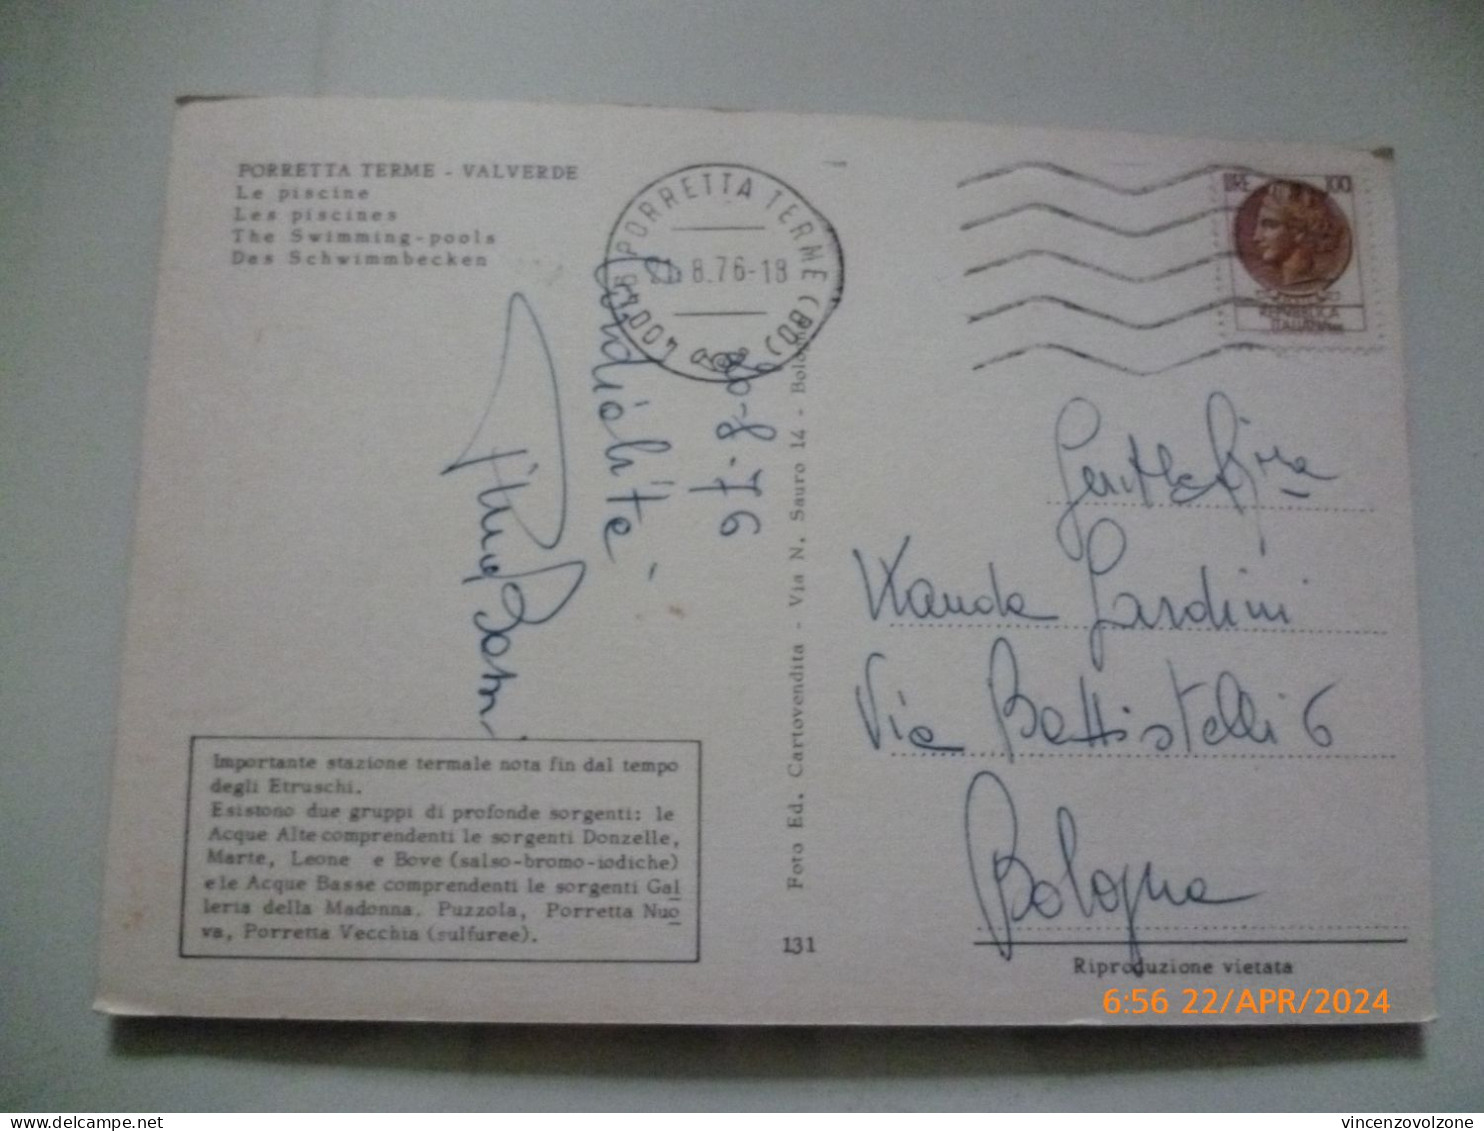 PORRETTA TERME - VALVERDE
Le piscine
Les piscines
The Swimming-pools
Das Schwimmbecken
PORRETTA TERME (BO)
21.8.76-18
LIRE 100
REPUBBLICA
ITALIANA
20-8-76
Cordialità
Foto Ed. Cartovendita - Via N. Sauro 14 - Bologna
131
Gent.le Sig.ra
Wanda Gardini
Via Battistelli 6
Bologna
Importante stazione termale nota fin dal tempo
degli Etruschi.
Esistono due gruppi di profonde sorgenti: le
Acque Alte comprendenti le sorgenti Donzelle,
Marte, Leone e Bove (salso-bromo-iodiche)
e le Acque Basse comprendenti le sorgenti Gal
leria della Madonna. Puzzola, Porretta Nuo
va, Porretta Vecchia (sulfuree).
Riproduzione vietata
6:56 22/APR/2024
vincenzovolzone